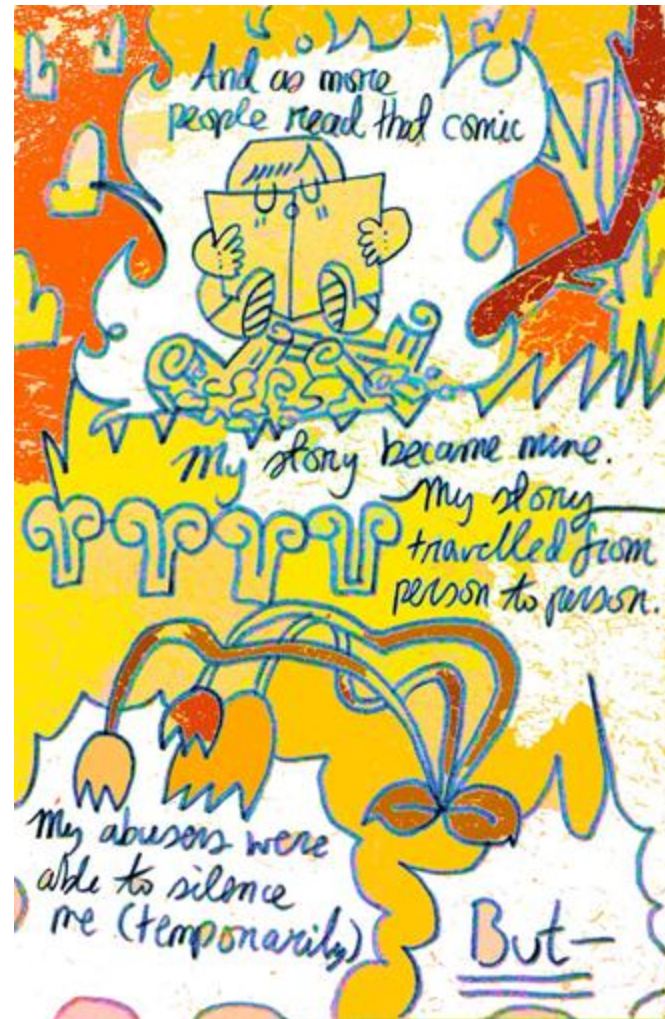 And as more
people read that comic
My story became mine.
My story
travelled from
person to person.
My abusers were
able to silence
me (temporarily)
But—